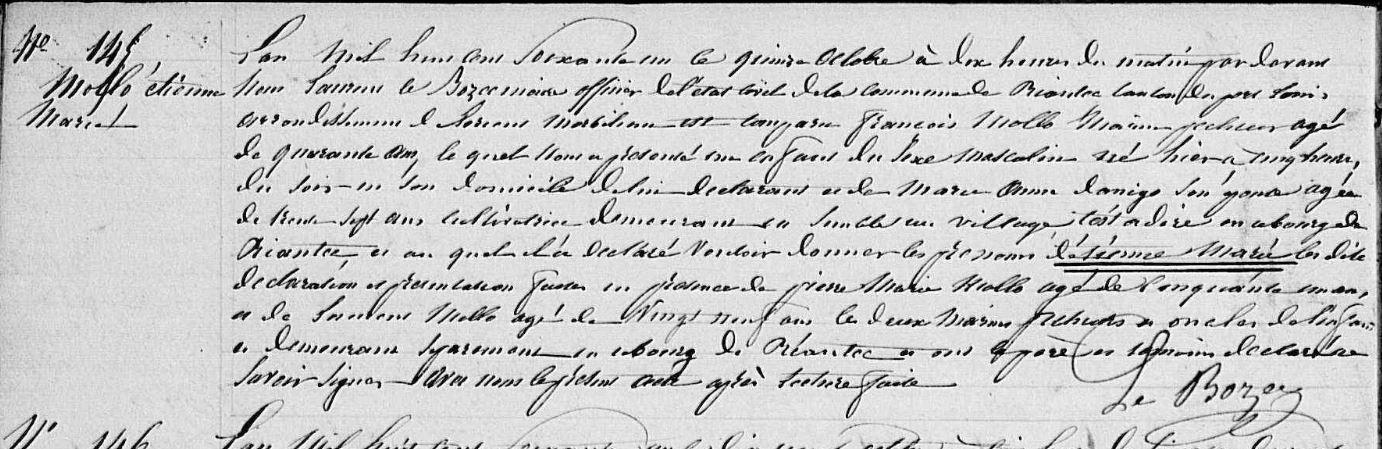 No 145
Mollo étienne
Marie
L'an mil huit cent soixante un le quinze octobre à dix heures du matin par devant
nous Laurent le Bozec maire officier de l'état civil de la commune de Riantec canton du port Louis
arrondissement de Lorient morbihan est comparu françois Mollo marin pecheur agé
de quarante ans, le quel nous a présenté un enfant du sexe masculin né hier a cinq heures,
du soir en son domicile de lui declarant et de marie anne son épouse agée
de trente sept ans cultivatrice demeurant en semble au village c'est a dire en ce bourg de
Riantec et au quel il a declaré vouloir donner les prénoms d'étienne Marie les dite
declaration et présentation faites en présence de pierre Marie Mollo agé de conquante un ans,
et de Laurent Mollo agé de vingt neuf ans les deux marins pecheurs et oncles de l'enfant
et demeurant en ce bourg de Riantec et ont le père et temoins declaré ne
savoir signer avec nous le présent acte après lecture faite
Le Bozec
No 146 L'an mil huit cent soixante